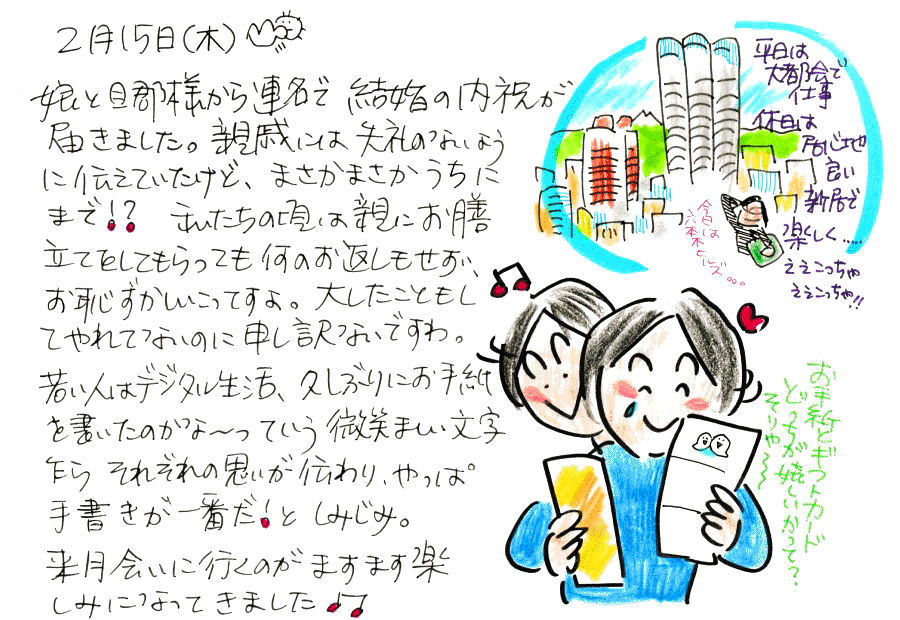 2月15日(木)
娘と旦那様から連名で 結婚の内祝が
届きました。親戚には失礼のないよう
に伝えていたけど、まさかまさかうちに
まで!? 私たちの頃は親にお膳
立てをしてもらっても何のお返しもせず、
お恥ずかしいこってすよ。大したこともし
てやれてないのに申し訳ないですわ。
若い人はデジタル生活、久しぶりにお手紙
を書いたのかな〜っていう微笑ましい文字
から それぞれの思いが伝わり、やっぱ
手書きが一番だ!としみじみ。
来月会いに行くのがますます楽
しみになってきました♪♪
平日は
大都会で
仕事
休日は
居心地
良い
新居で
楽しく.....
ええこっちゃ
ええこっちゃ!!
今日は
六本木ヒルズ...
お手紙とギフトカード
どっちが嬉しいかって?
そりゃ〜〜